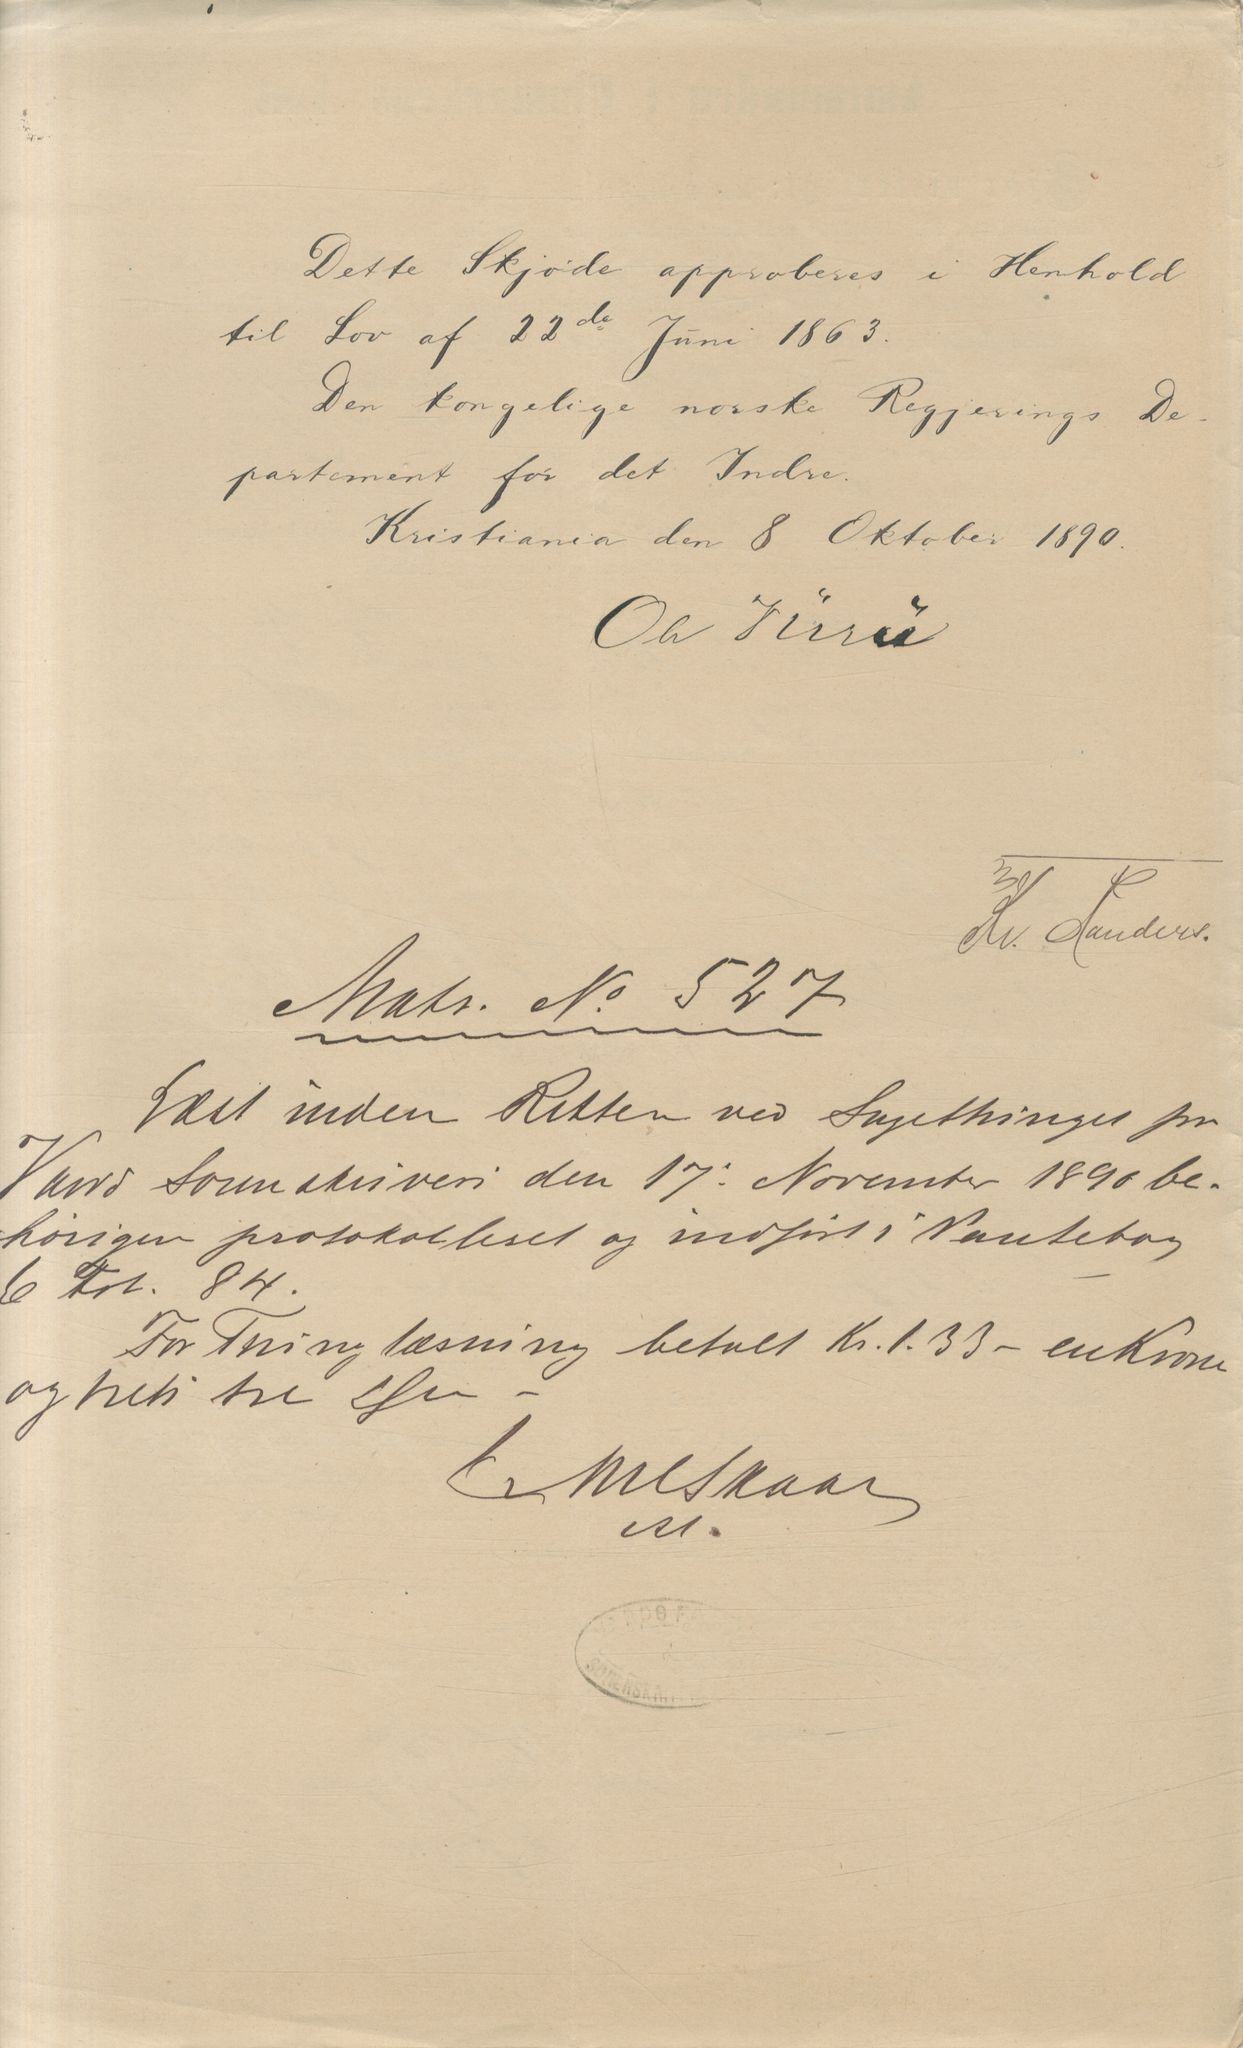 Dette Skjøde approberes i Henhold
til Lov af 22de Juni 1863.
Den kongelige norske Regjerings De-
partement for det Indre.
Kristiania den 8 Oktober 1890.
Ole
Kr. Sanders.
Matr. No 527
Læst inden Retten ved Sagethinget for
Vardø Sorenskriveri den 17: November 1890 be-
hørigen protokolleret og indført i Pantebog
6 Fol. 84.
For Thinglæsning betalt Kr. 1.33 - en Krone
og treti tre Øre -
Skaar